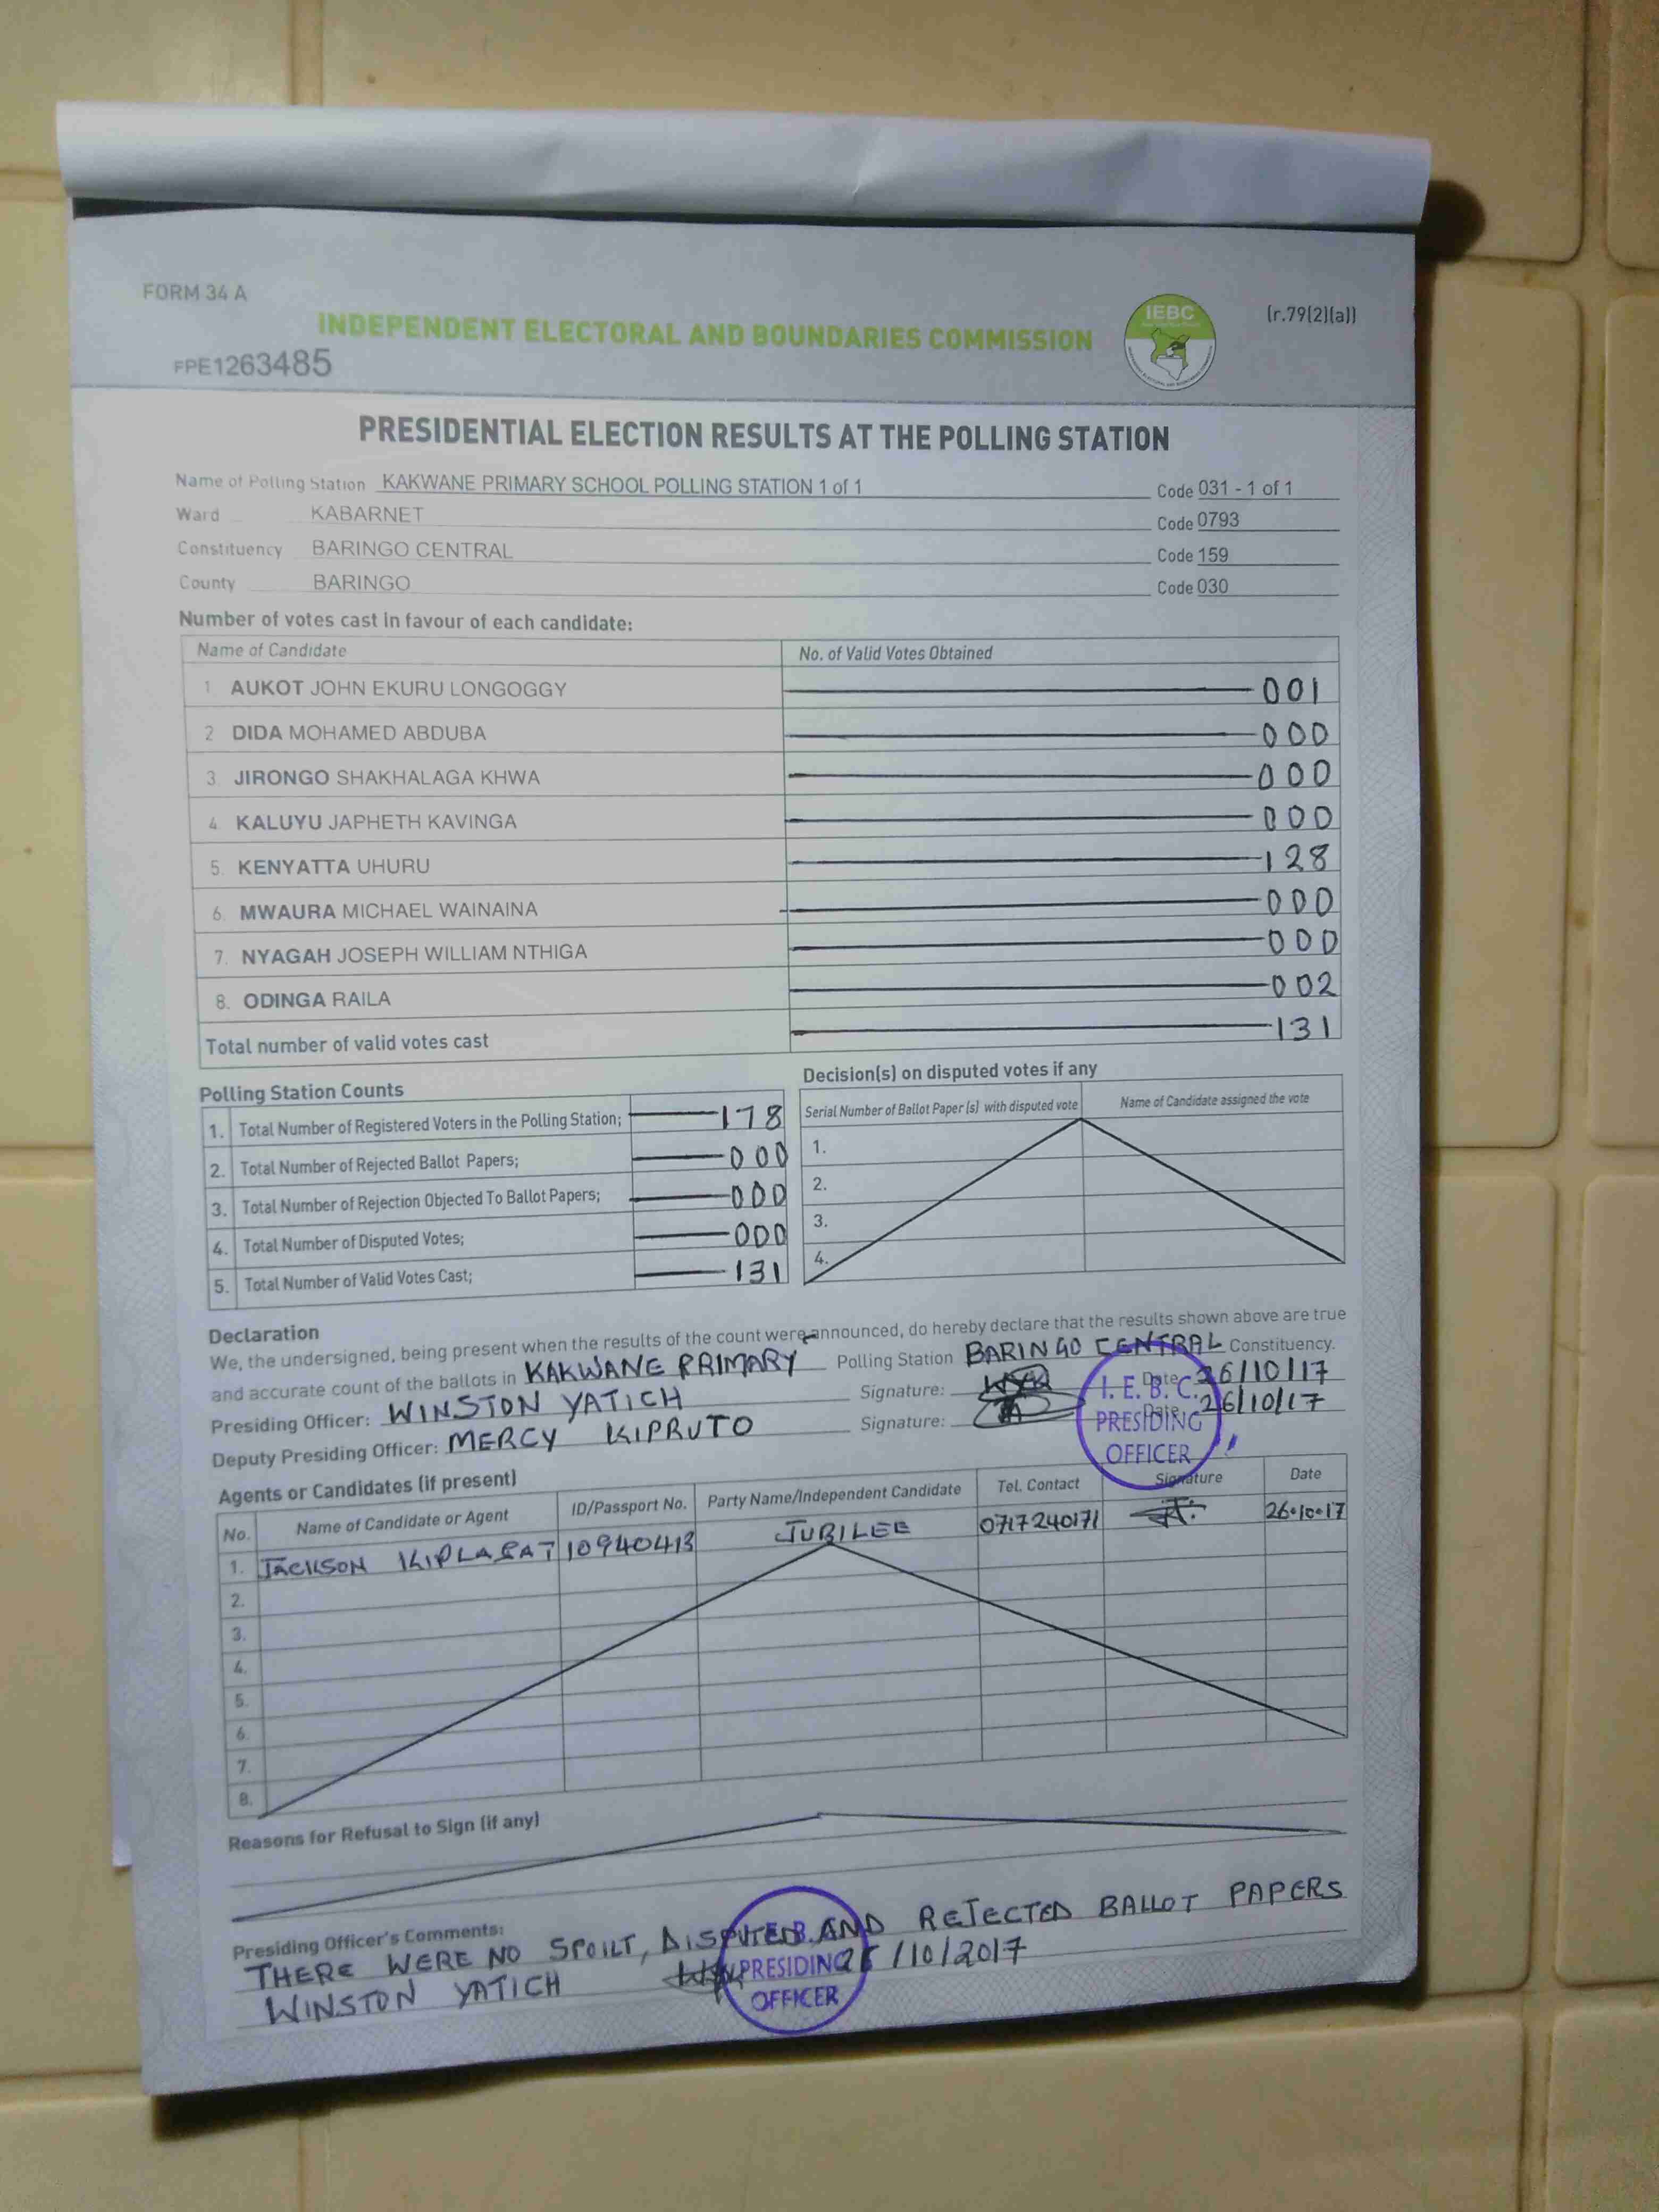 FORM 34 A
INDEPENDENT ELECTORAL AND BOUNDARIES COMMISSION
IEBC
(r.79(2)(a))
FPE1263485
PRESIDENTIAL ELECTION RESULTS AT THE POLLING STATION
Name of Polling Station KAKWANE PRIMARY SCHOOL POLLING STATION 1 of 1 Code 031 - 1 of 1
Ward KABARNET Code 0793
Constituency BARINGO CENTRAL Code 159
County BARINGO Code 030
Number of votes cast in favour of each candidate:
Name of Candidate No. of Valid Votes Obtained
1 AUKOT JOHN EKURU LONGOGGY 001
2 DIDA MOHAMED ABDUBA 000
3. JIRONGO SHAKHALAGA KHWA 000
4. KALUYU JAPHETH KAVINGA 000
5. KENYATTA UHURU 128
6. MWAURA MICHAEL WAINAINA 000
7. NYAGAH JOSEPH WILLIAM NTHIGA 000
8. ODINGA RAILA 002
Total number of valid votes cast 131
Polling Station Counts
1. Total Number of Registered Voters in the Polling Station; 178
2. Total Number of Rejected Ballot Papers; 000
3. Total Number of Rejection Objected To Ballot Papers; 000
4. Total Number of Disputed Votes; 000
5. Total Number of Valid Votes Cast; 131
Decision(s) on disputed votes if any
Serial Number of Ballot Paper (s) with disputed vote Name of Candidate assigned the vote
1.
2.
3.
4.
Declaration
We, the undersigned, being present when the results of the count were announced, do hereby declare that the results shown above are true
and accurate count of the ballots in KAKWANE PRIMARY Polling Station BARINGO CENTRAL Constituency.
Presiding Officer: WINSTON YATICH Signature: Date 26/10/17
Deputy Presiding Officer: MERCY KIPRUTO Signature: Date 26/10/17
I. E. B. C.
PRESIDING
OFFICER
Agents or Candidates (if present)
No. Name of Candidate or Agent ID/Passport No. Party Name/Independent Candidate Tel. Contact Signature Date
1. JACKSON KIPLAGAT 10940413 JUBILEE 0717240171 26.10.17
2.
3.
4.
5.
6.
7.
8.
Reasons for Refusal to Sign (if any)
Presiding Officer's Comments:
THERE WERE NO SPOILT, DISPUTED AND REJECTED BALLOT PAPERS
WINSTON YATICH 26/10/2017
PRESIDING
OFFICER